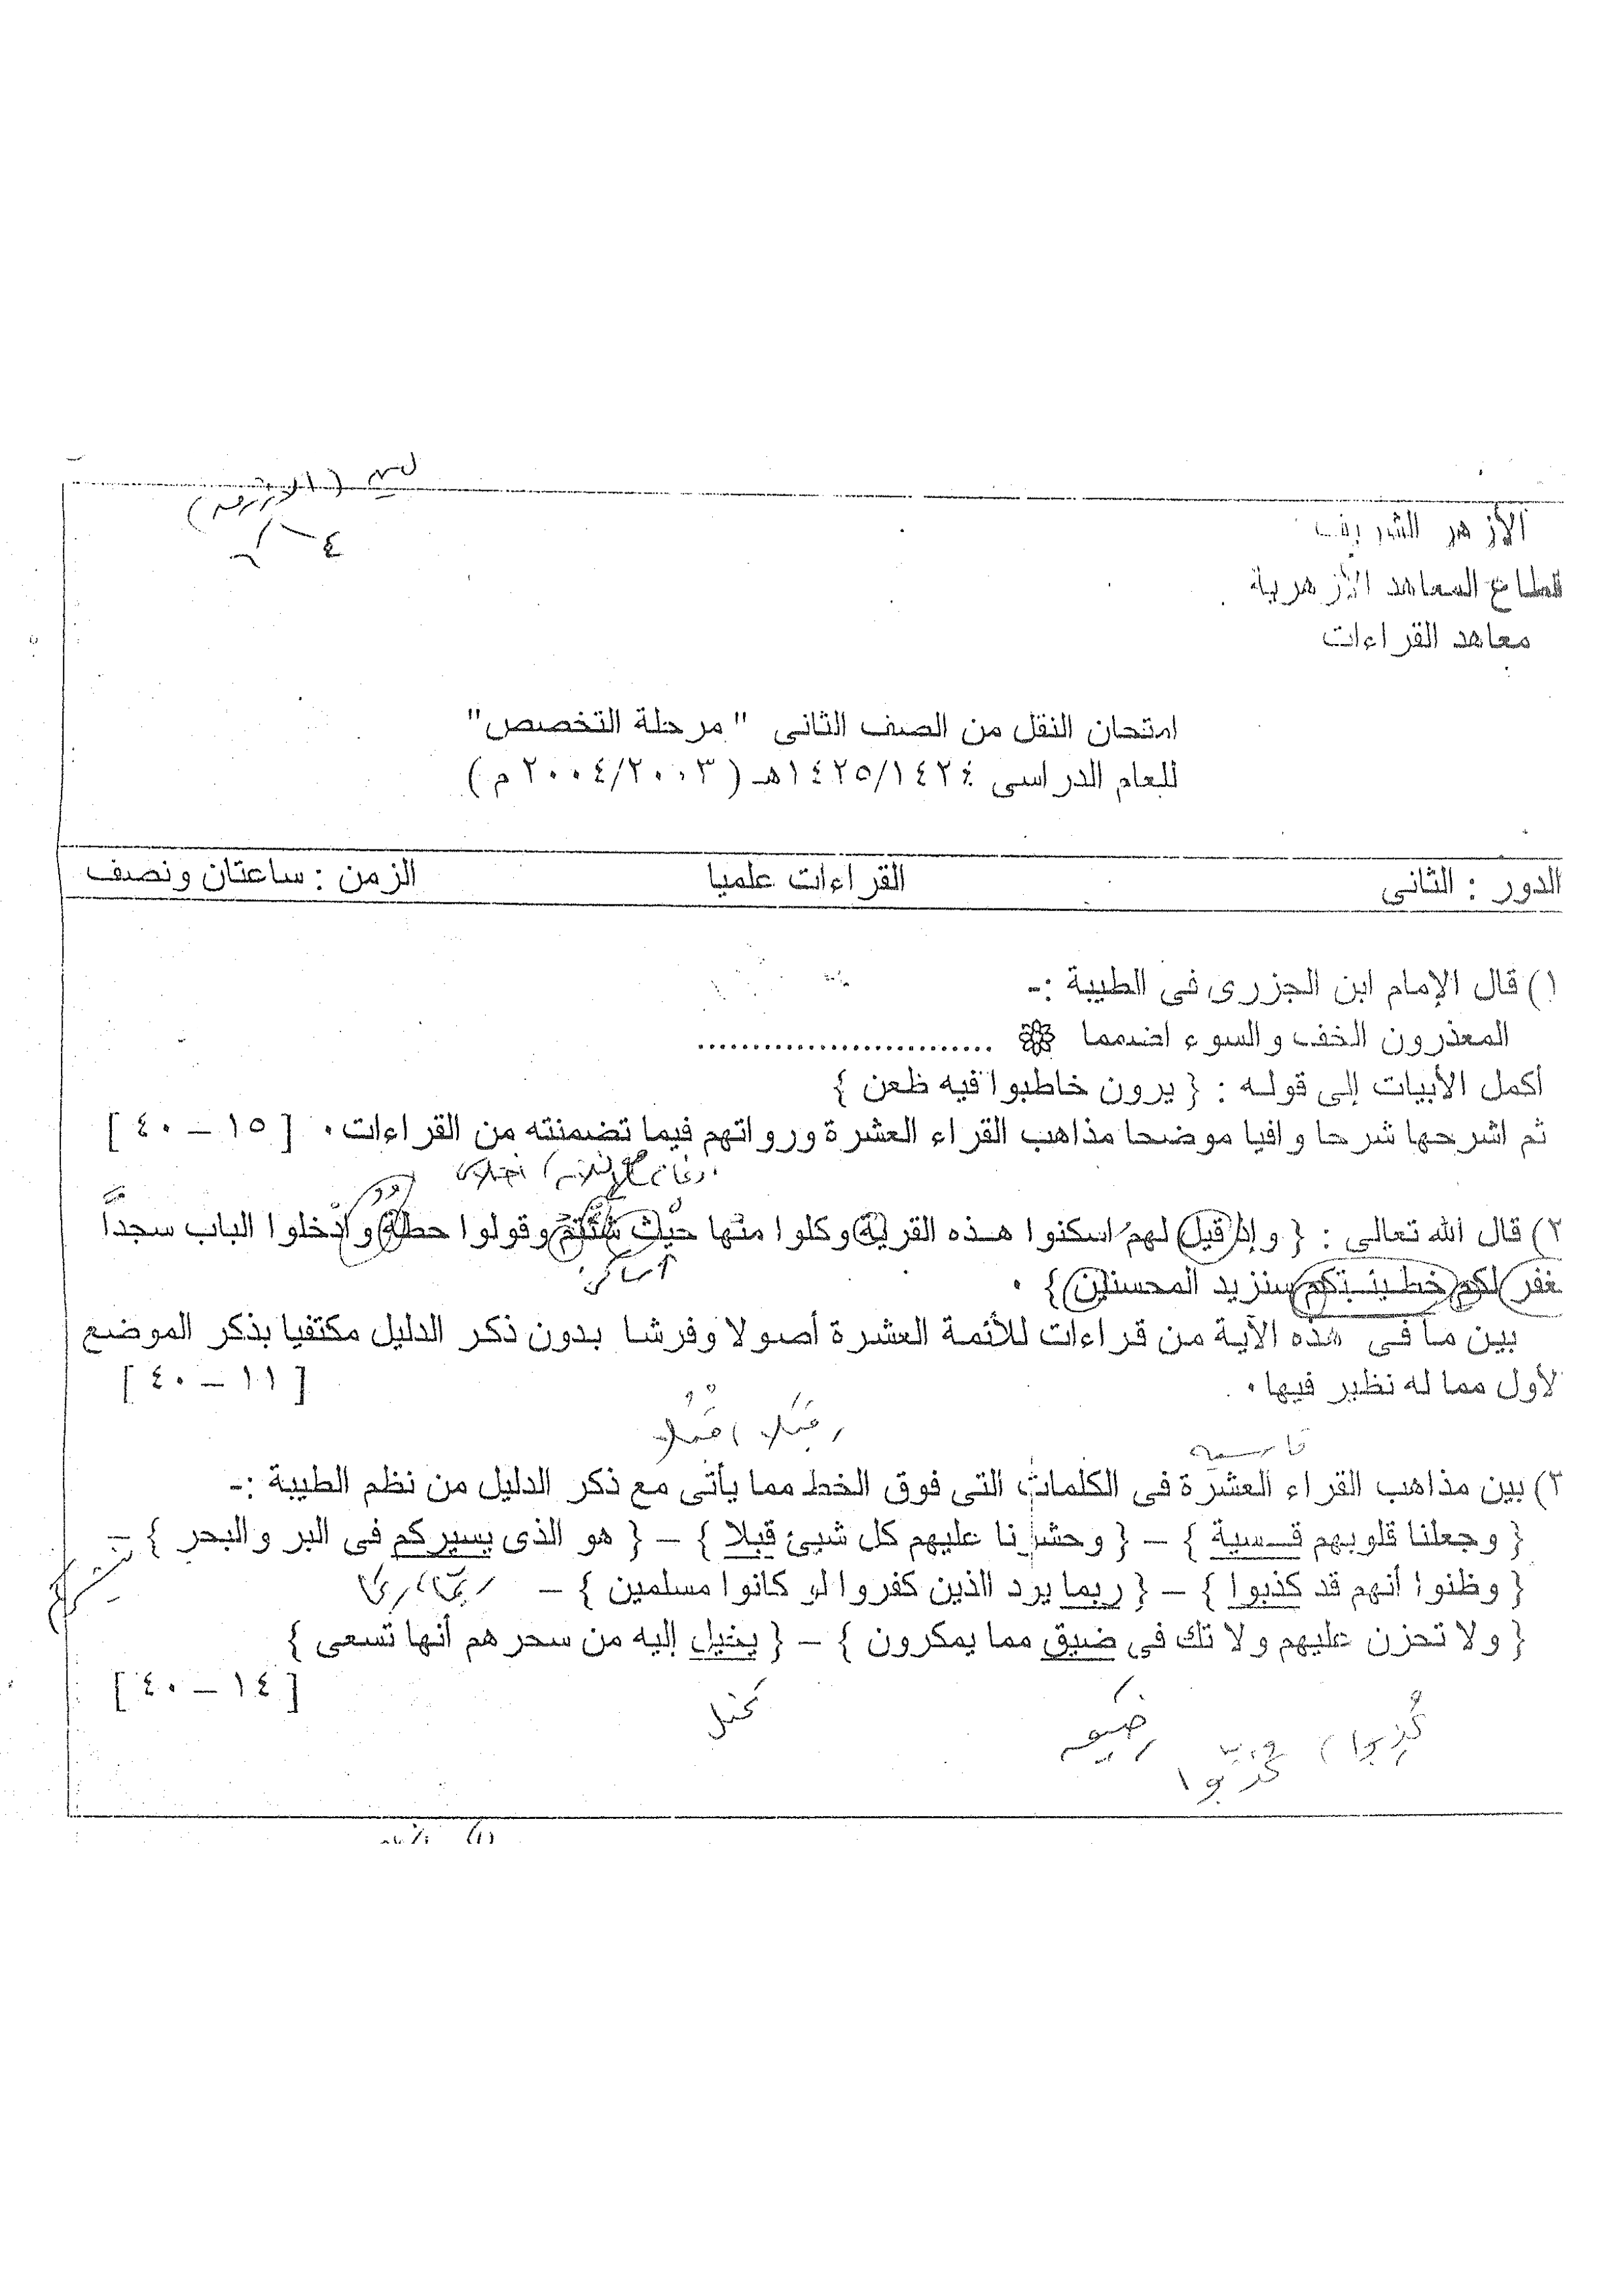 الأزهر الشريف
قطاع المعاهد الأزهرية
معاهد القراءات
امتحان النقل من الصف الثانى "مرحلة التخصص"
للعام الدراسى ١٤٢٥/١٤٢٤هـ (٢٠٠٤/٢٠٠٣م)
الدور : الثانى القراءات علميا الزمن : ساعتان ونصف
١) قال الإمام ابن الجزرى فى الطيبة :-
المعذرون الخف والسوء اضمما ..........................
أكمل الأبيات إلى قوله : { يرون خاطبوا فيه ظعن }
ثم اشرحها شرحا وافيا موضحا مذاهب القراء العشرة ورواتهم فيما تضمنته من القراءات. [ ١٥ – ٤٠ ]
٢) قال الله تعالى : { وإذ قيل لهم اسكنوا هذه القرية وكلوا منها حيث شئتم وقولوا حطة وادخلوا الباب سجداً
غفر لكم خطيئتكم سنزيد المحسنين } .
بين ما فى هذه الآية من قراءات للأئمة العشرة أصولا وفرشا بدون ذكر الدليل مكتفيا بذكر الموضع
لأول مما له نظير فيها. [ ١١ – ٤٠ ]
٣) بين مذاهب القراء العشرة فى الكلمات التى فوق الخط مما يأتى مع ذكر الدليل من نظم الطيبة :-
{ وجعلنا قلوبهم قسية } – { وحشرنا عليهم كل شيئ قبلا } – { هو الذى يسيركم فى البر والبحر } –
{ وظنوا أنهم قد كذبوا } – { ربما يرد الذين كفروا لو كانوا مسلمين } –
{ ولا تحزن عليهم ولا تك فى ضيق مما يمكرون } – { يخيل إليه من سحرهم أنها تسعى }
[ ١٤ – ٤٠ ]